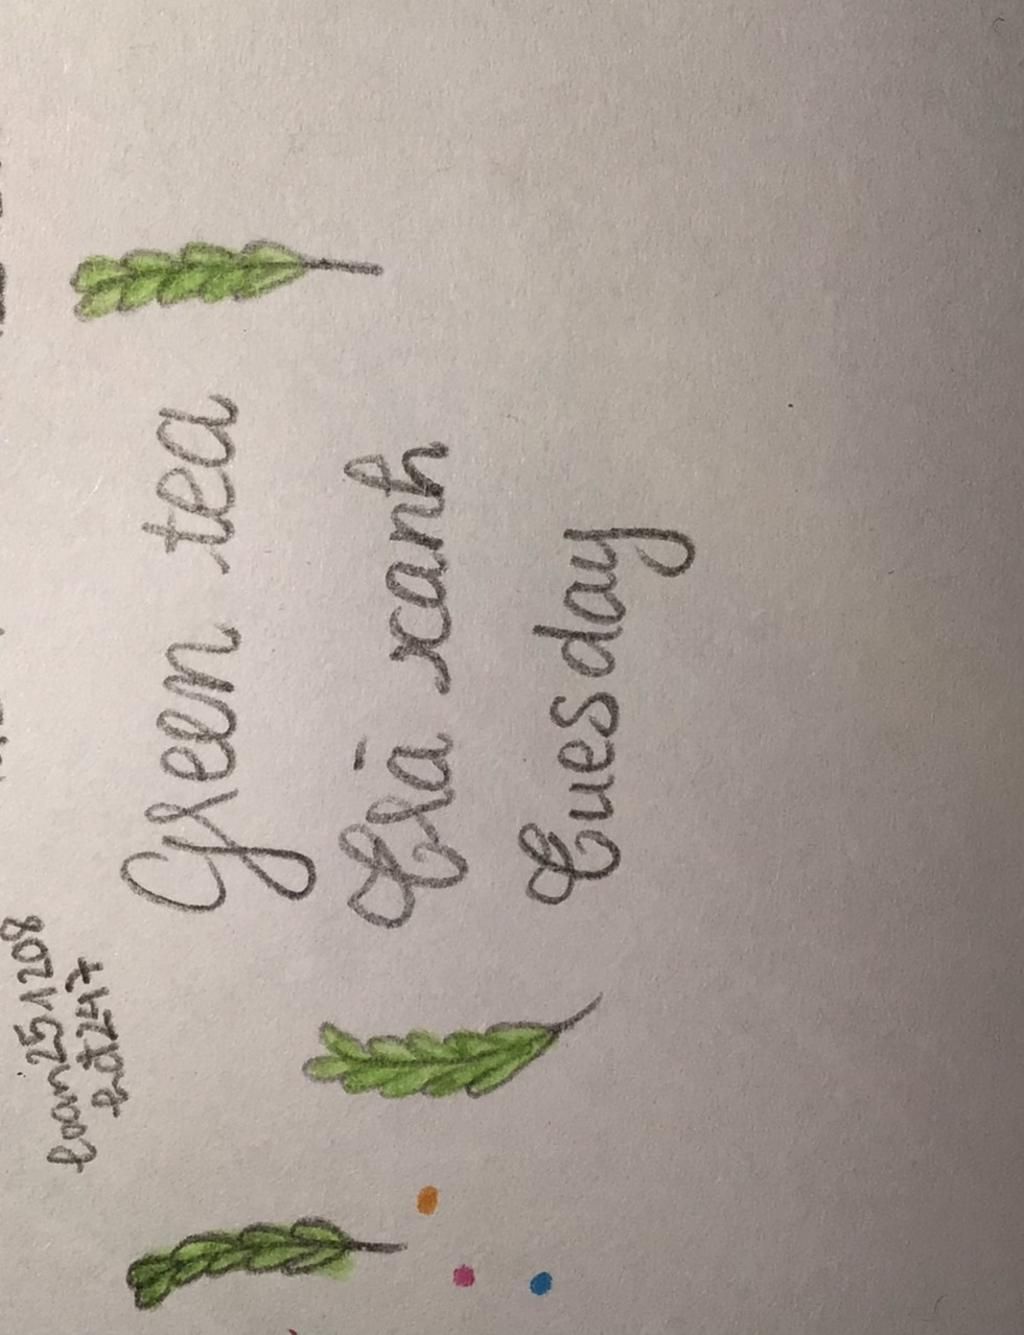 loan251208
hđ247
Green tea
Trà xanh
Tuesday